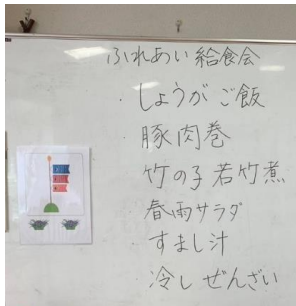 ふれあい給食会
・しょうがご飯
・豚肉巻
・竹の子若竹煮
・春雨サラダ
・すまし汁
・冷しぜんざい